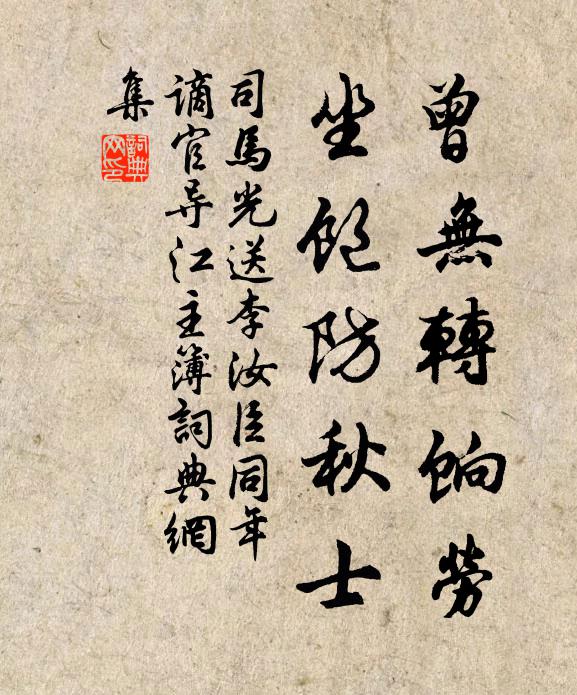 曾無轉餉勞
坐飽防秋士
司馬光送李汝臣同年
谪官导江主簿詞典網
集
詞典網印